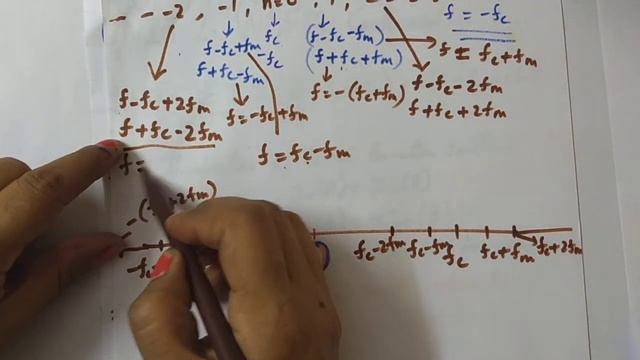 - - - -2 , -1 , n=0 , 1 ,
f = -fc
f-fc+fm
fc
-fc
(f-fc-fm)
f = fc+fm
f+fc-fm
(f+fc+fm)
f-fc+2fm
f=-fc+fm
f=-(fc+fm)
f-fc-2fm
f+fc-2fm
f+fc+2fm
f=
f=fc-fm
fc-2fm fc-fm fc fc+fm fc+2fm